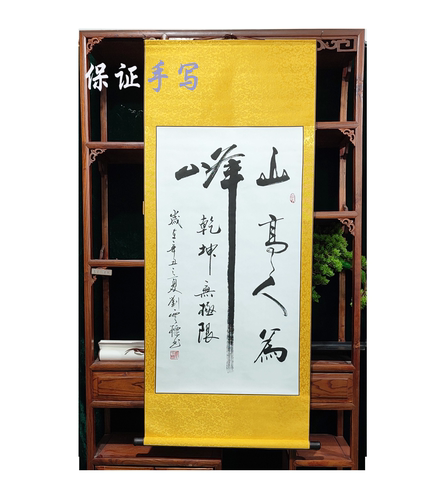 保证手写
山高人為
峰
乾坤無極限
歲在辛丑之夏劉